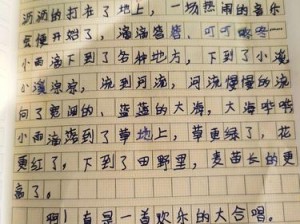 沥沥的打在了地上，一场热闹的音乐
会便开始了，滴滴答答，叮叮咚咚…
小雨滴下到了各种地方，下到了小溪
小溪淙淙，流到河流，河流慢慢的流
向了宽阔的、蓝蓝的大海，大海哗哗
小雨滴落到了草地上，草更绿了，花
更红了，下到了田野里，麦苗长的更
高了。
啊！真是一首欢乐的大合唱。